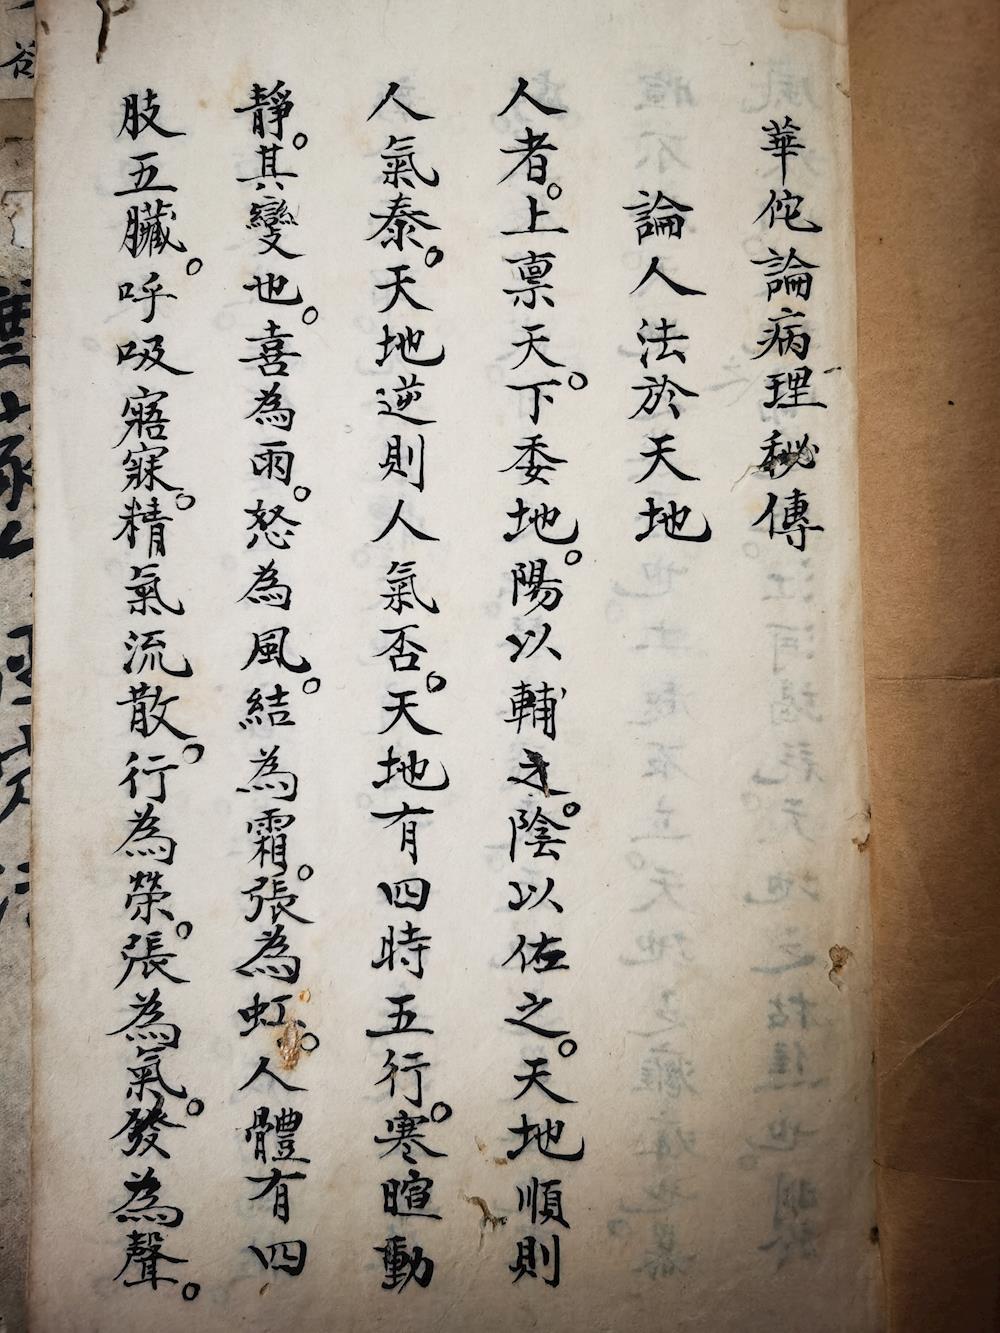 華佗論病理秘傳
論人法於天地
人者。上稟天。下委地。陽以輔之。陰以佐之。天地順則
人氣泰。天地逆則人氣否。天地有四時五行。寒暄動
靜。其變也。喜為雨。怒為風。結為霜。張為虹。人體有四
肢五臟。呼吸寤寐。精氣流散。行為榮。張為氣。發為聲。